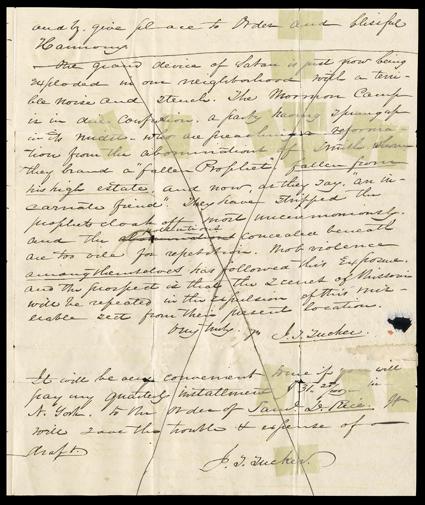 and give place to Order and blissful
Harmony
The grand device of Satan is just now being
exploded in our neighborhood with a terri-
ble noise and stench. The Mormon Camp
is in dire confusion. a party having sprung up
in its midst who are preaching a reforma-
tion from the abominations of Smith whom
they brand a fallen Prophet" fallen from
his high estate and now, as they say, "an in-
carnate fiend". They have stripped the
prophets cloak off most unceremoniously.
and the pollutions concealed beneath
are too vile for repetition. Mob violence
among themselves has followed this Exposure.
and the prospect is that the Scenes of Missouri
will be repeated in the expulsion of this mis-
erable sect from their present location.
Very truly yrs J. T. Tucker.
It will be any convenient time if you will
pay my quarterly installment $31.25/100 in
N. York. to the order of Saml D. Rice. It
will save the trouble & expense of a
draft.
J. T. Tucker.